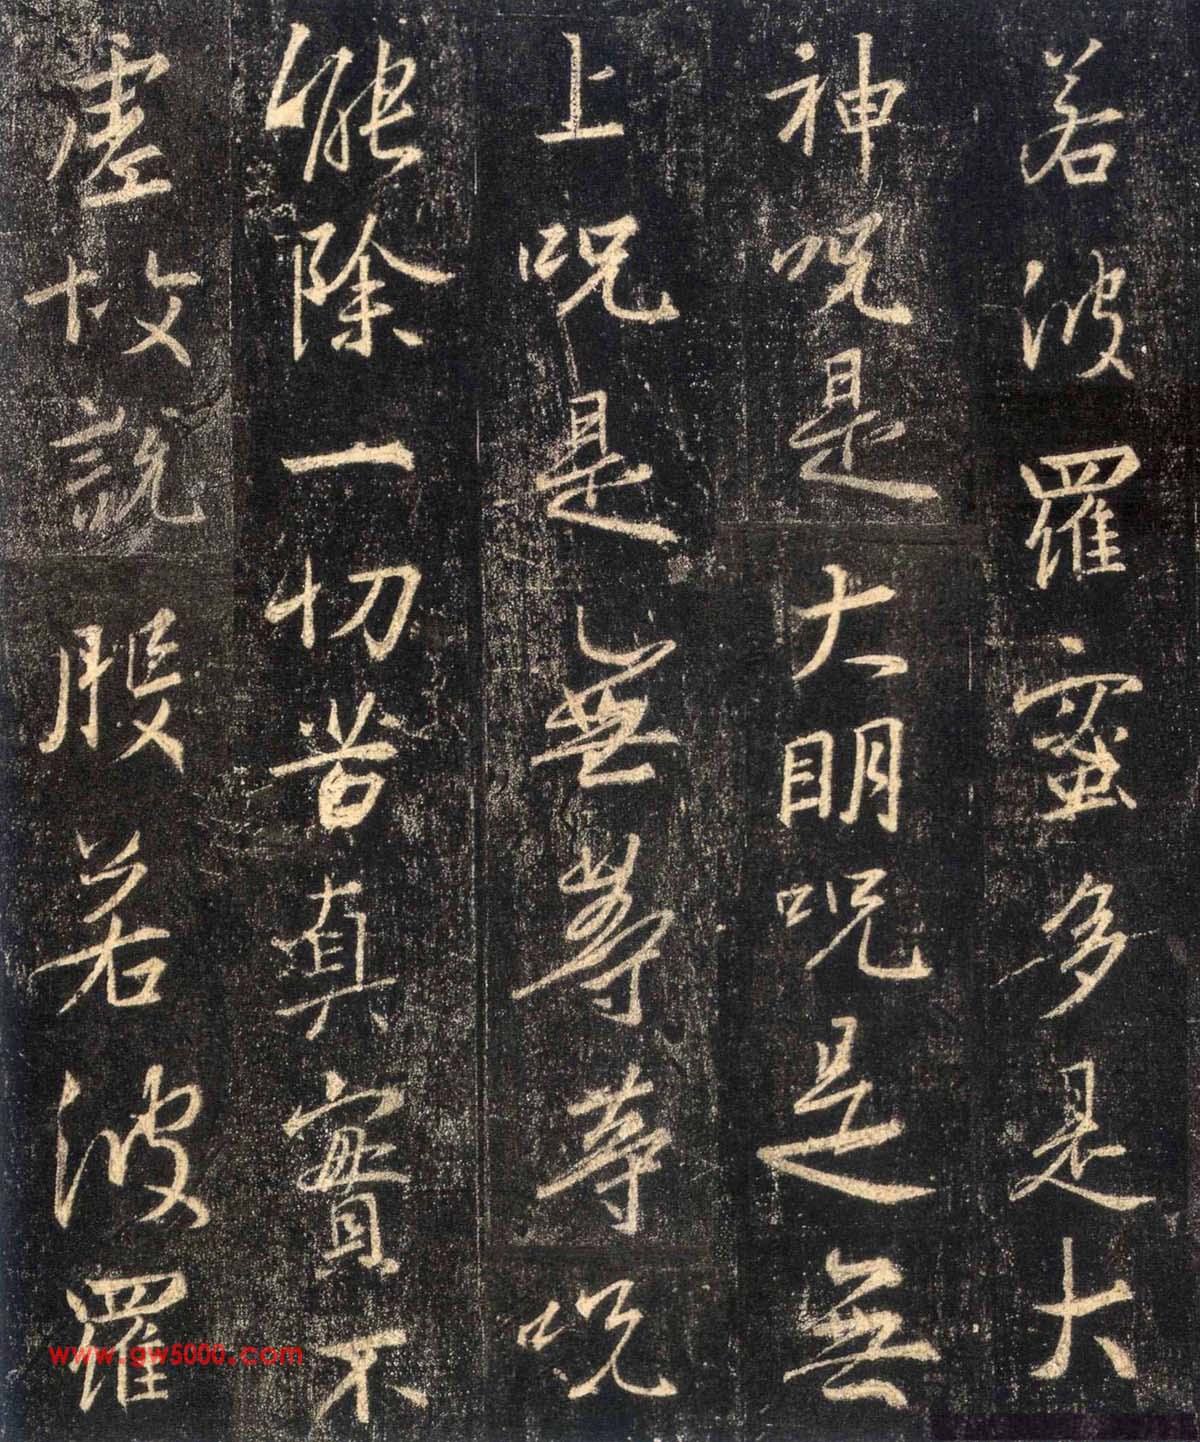 若波羅蜜多是大
神咒是大明咒是無
上咒是無等等咒
能除一切苦真實不
虛故說般若波羅
www.gw5000.com